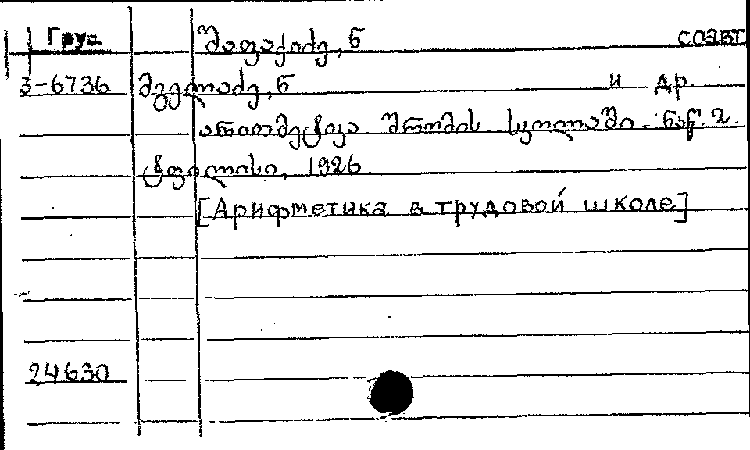 Груз. შაფაქიძე, ნ соавт.
3-6736 მგელაძე, ნ и др.
არითმეტიკა შრომის სკოლაში. ნაწ. 2.
ტფილისი, 1926
[Арифметика в трудовой школе]
24630